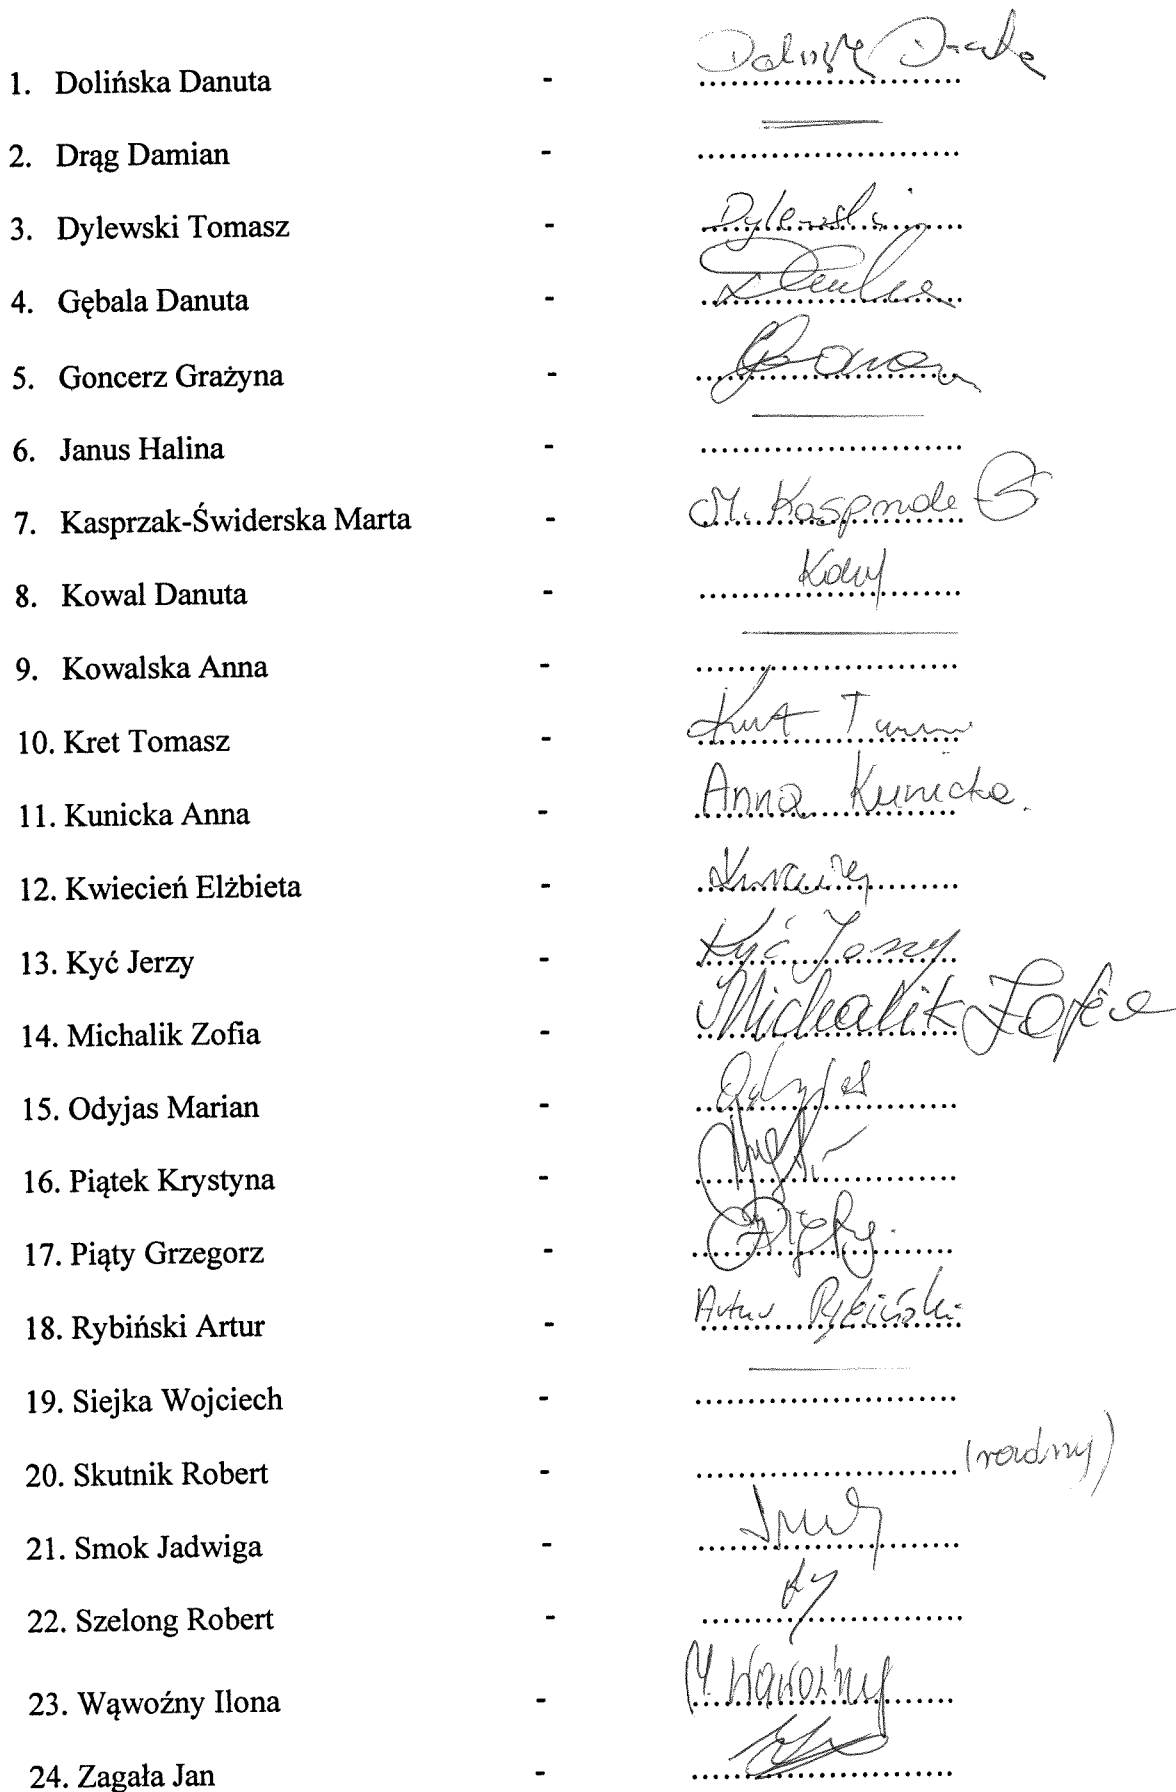 1. Dolińska Danuta - ........................
2. Drąg Damian - ........................
3. Dylewski Tomasz - Dylewski
4. Gębala Danuta - ........................
5. Goncerz Grażyna - ........................
6. Janus Halina - ........................
7. Kasprzak-Świderska Marta - M. Kasprzak
8. Kowal Danuta - ........................
9. Kowalska Anna - ........................
10. Kret Tomasz - Kret
11. Kunicka Anna - Anna Kunicka.
12. Kwiecień Elżbieta - ........................
13. Kyć Jerzy - Kyć Jerzy
14. Michalik Zofia - Michalik Zofia
15. Odyjas Marian - Odyjas
16. Piątek Krystyna - ........................
17. Piąty Grzegorz - ........................
18. Rybiński Artur - Artur Rybiński
19. Siejka Wojciech - ........................
20. Skutnik Robert - ........................ (radny)
21. Smok Jadwiga - ........................
22. Szelong Robert - ........................
23. Wąwoźny Ilona - Wąwoźny
24. Zagała Jan - ........................